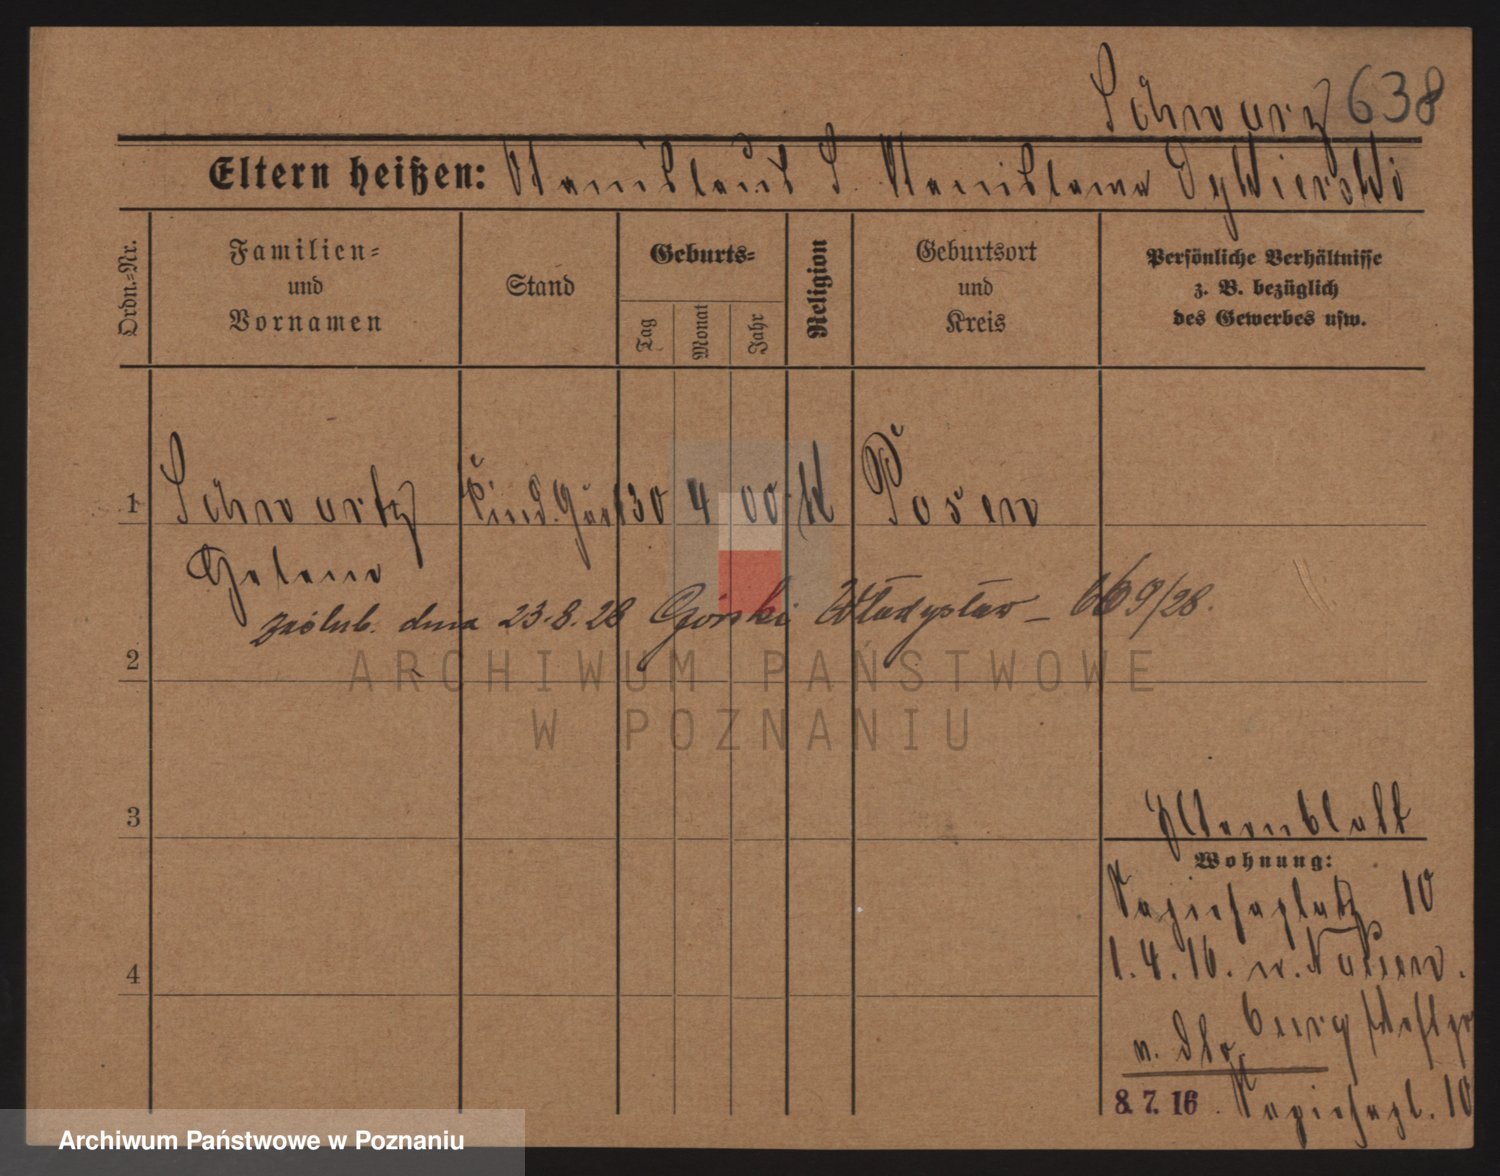 Schwarz 638
Eltern heißen: Stanislaus S. Stanislawa
Ordn.-Nr.
Familien-
und
Vornamen
Stand
Geburts-
Tag
Monat
Jahr
Religion
Geburtsort
und
Kreis
Persönliche Verhältnisse
z. B. bezüglich
des Gewerbes usw.
1
Schwartz 30 4 00 K Posen
Helene
zaślub. dnia 23.8.28 Górski Władysław – 669/28.
2
ARCHIWUM PAŃSTWOWE
W POZNANIU
3
Elternblatt
Wohnung:
Sapiehaplatz 10
1.4.16. n.
4
8.7.16. Sapiehapl. 10
Archiwum Państwowe w Poznaniu